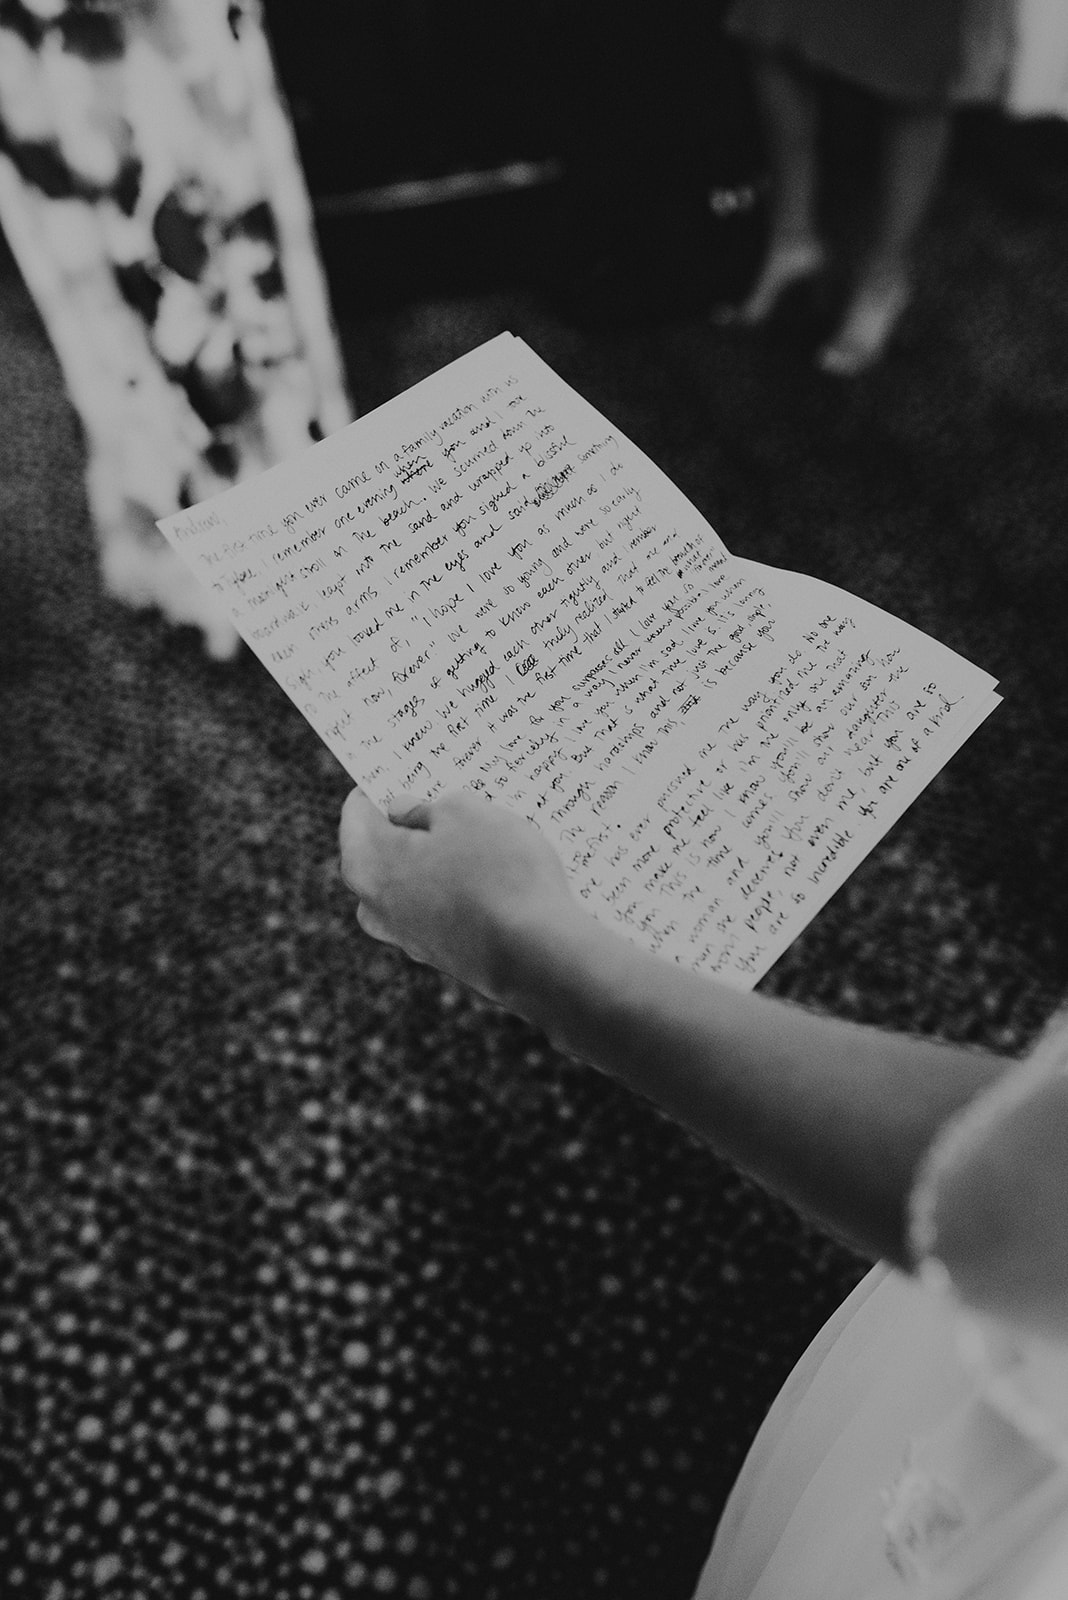 Andrew,
The first time you ever came on a family vacation with us
to Tybee. I remember one evening where when you and I took
a moonlight stroll on the beach. We scurried down the
boardwalk, leapt into the sand and wrapped up into
each others arms. I remember you sighed a blissful
sigh, you looked me in the eyes and said something
to the affect of, "I hope I love you as much as I do
right now, forever." We were so young and were so early
in the stages of getting to know each other but right
then, I knew. We hugged each other tightly and I remember
being the first time I truly realized that me and
were forever. It was the first time that I started to feel the
My love for you surpasses all. I love you so
so fiercely in a way I never knew possible. I love
I'm happy, I love you when I'm sad, I love you when
at you. But that is what true love is. It's loving
through hardships and not just the good, simple,
The reason I know this, is because you
me first.
one has ever pursued me the way you do. No one
been more protective or has prioritized me the way
you make me feel like I'm the only one that
you. This is how I know you'll be an amazing
when the time comes. You'll show our son how
a woman and you'll show our daughter the
man she deserves. You don't hear this
most people, not even me, but you are so
you are so incredible you are one of a kind.